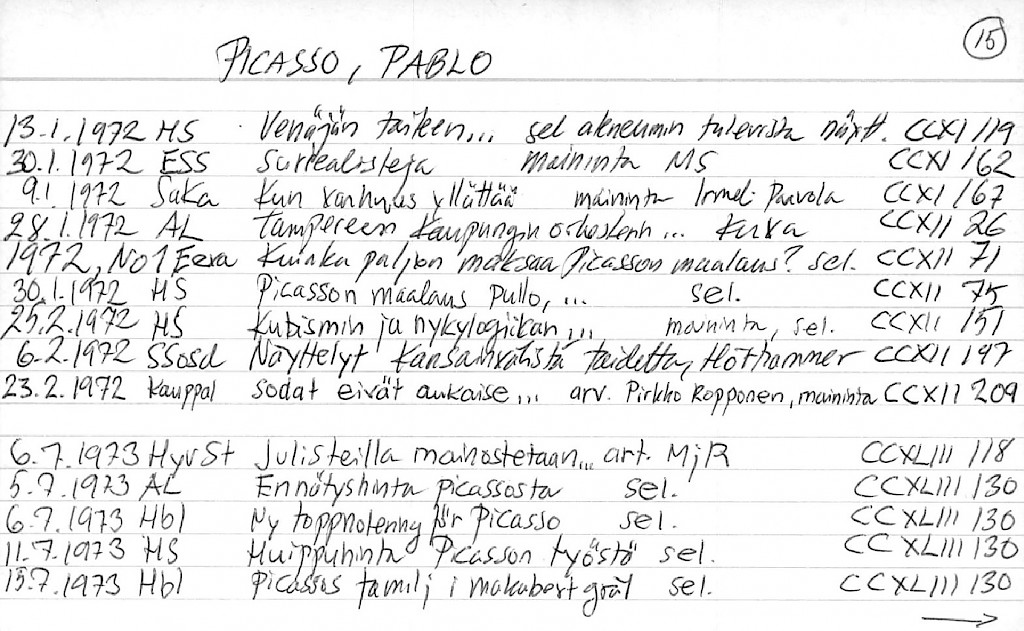 15
PICASSO, PABLO
13.1.1972 HS Venäjän taiteen... sel akneumin tulevista näytt. CCXI 119
30.1.1972 ESS Surrealisteja maininta MS CCXI 162
9.1.1972 SaKa Kun vanhuus yllättää maininta Irmeli Paavola CCXI 167
28.1.1972 AL Tampereen Kaupungin orkesterin... kuva CCXII 26
1972, No 1 Eeva Kuinka paljon maksaa Picasson maalaus? sel. CCXII 71
30.1.1972 HS Picasson maalaus Pullo,... sel. CCXII 75
25.2.1972 HS Kubismin ja nykylogiikan,... maininta, sel. CCXII 151
6.2.1972 SSosd Näyttelyt Kansainvälistä taidetta, Höthammer CCXII 197
23.2.1972 Kauppal sodat eivät aukaise... arv. Pirkko Ropponen, maininta CCXII 209
6.7.1973 HyvSt Julisteilla mainostetaan... art. MjR CCXLIII 118
5.7.1973 AL Ennätyshinta Picassosta sel. CCXLIII 130
6.7.1973 Hbl Ny toppnotering för Picasso sel. CCXLIII 130
11.7.1973 HS Huippuhinta Picasson työstä sel. CCXLIII 130
15.7.1973 Hbl Picassos familj i makabert gräl sel. CCXLIII 130